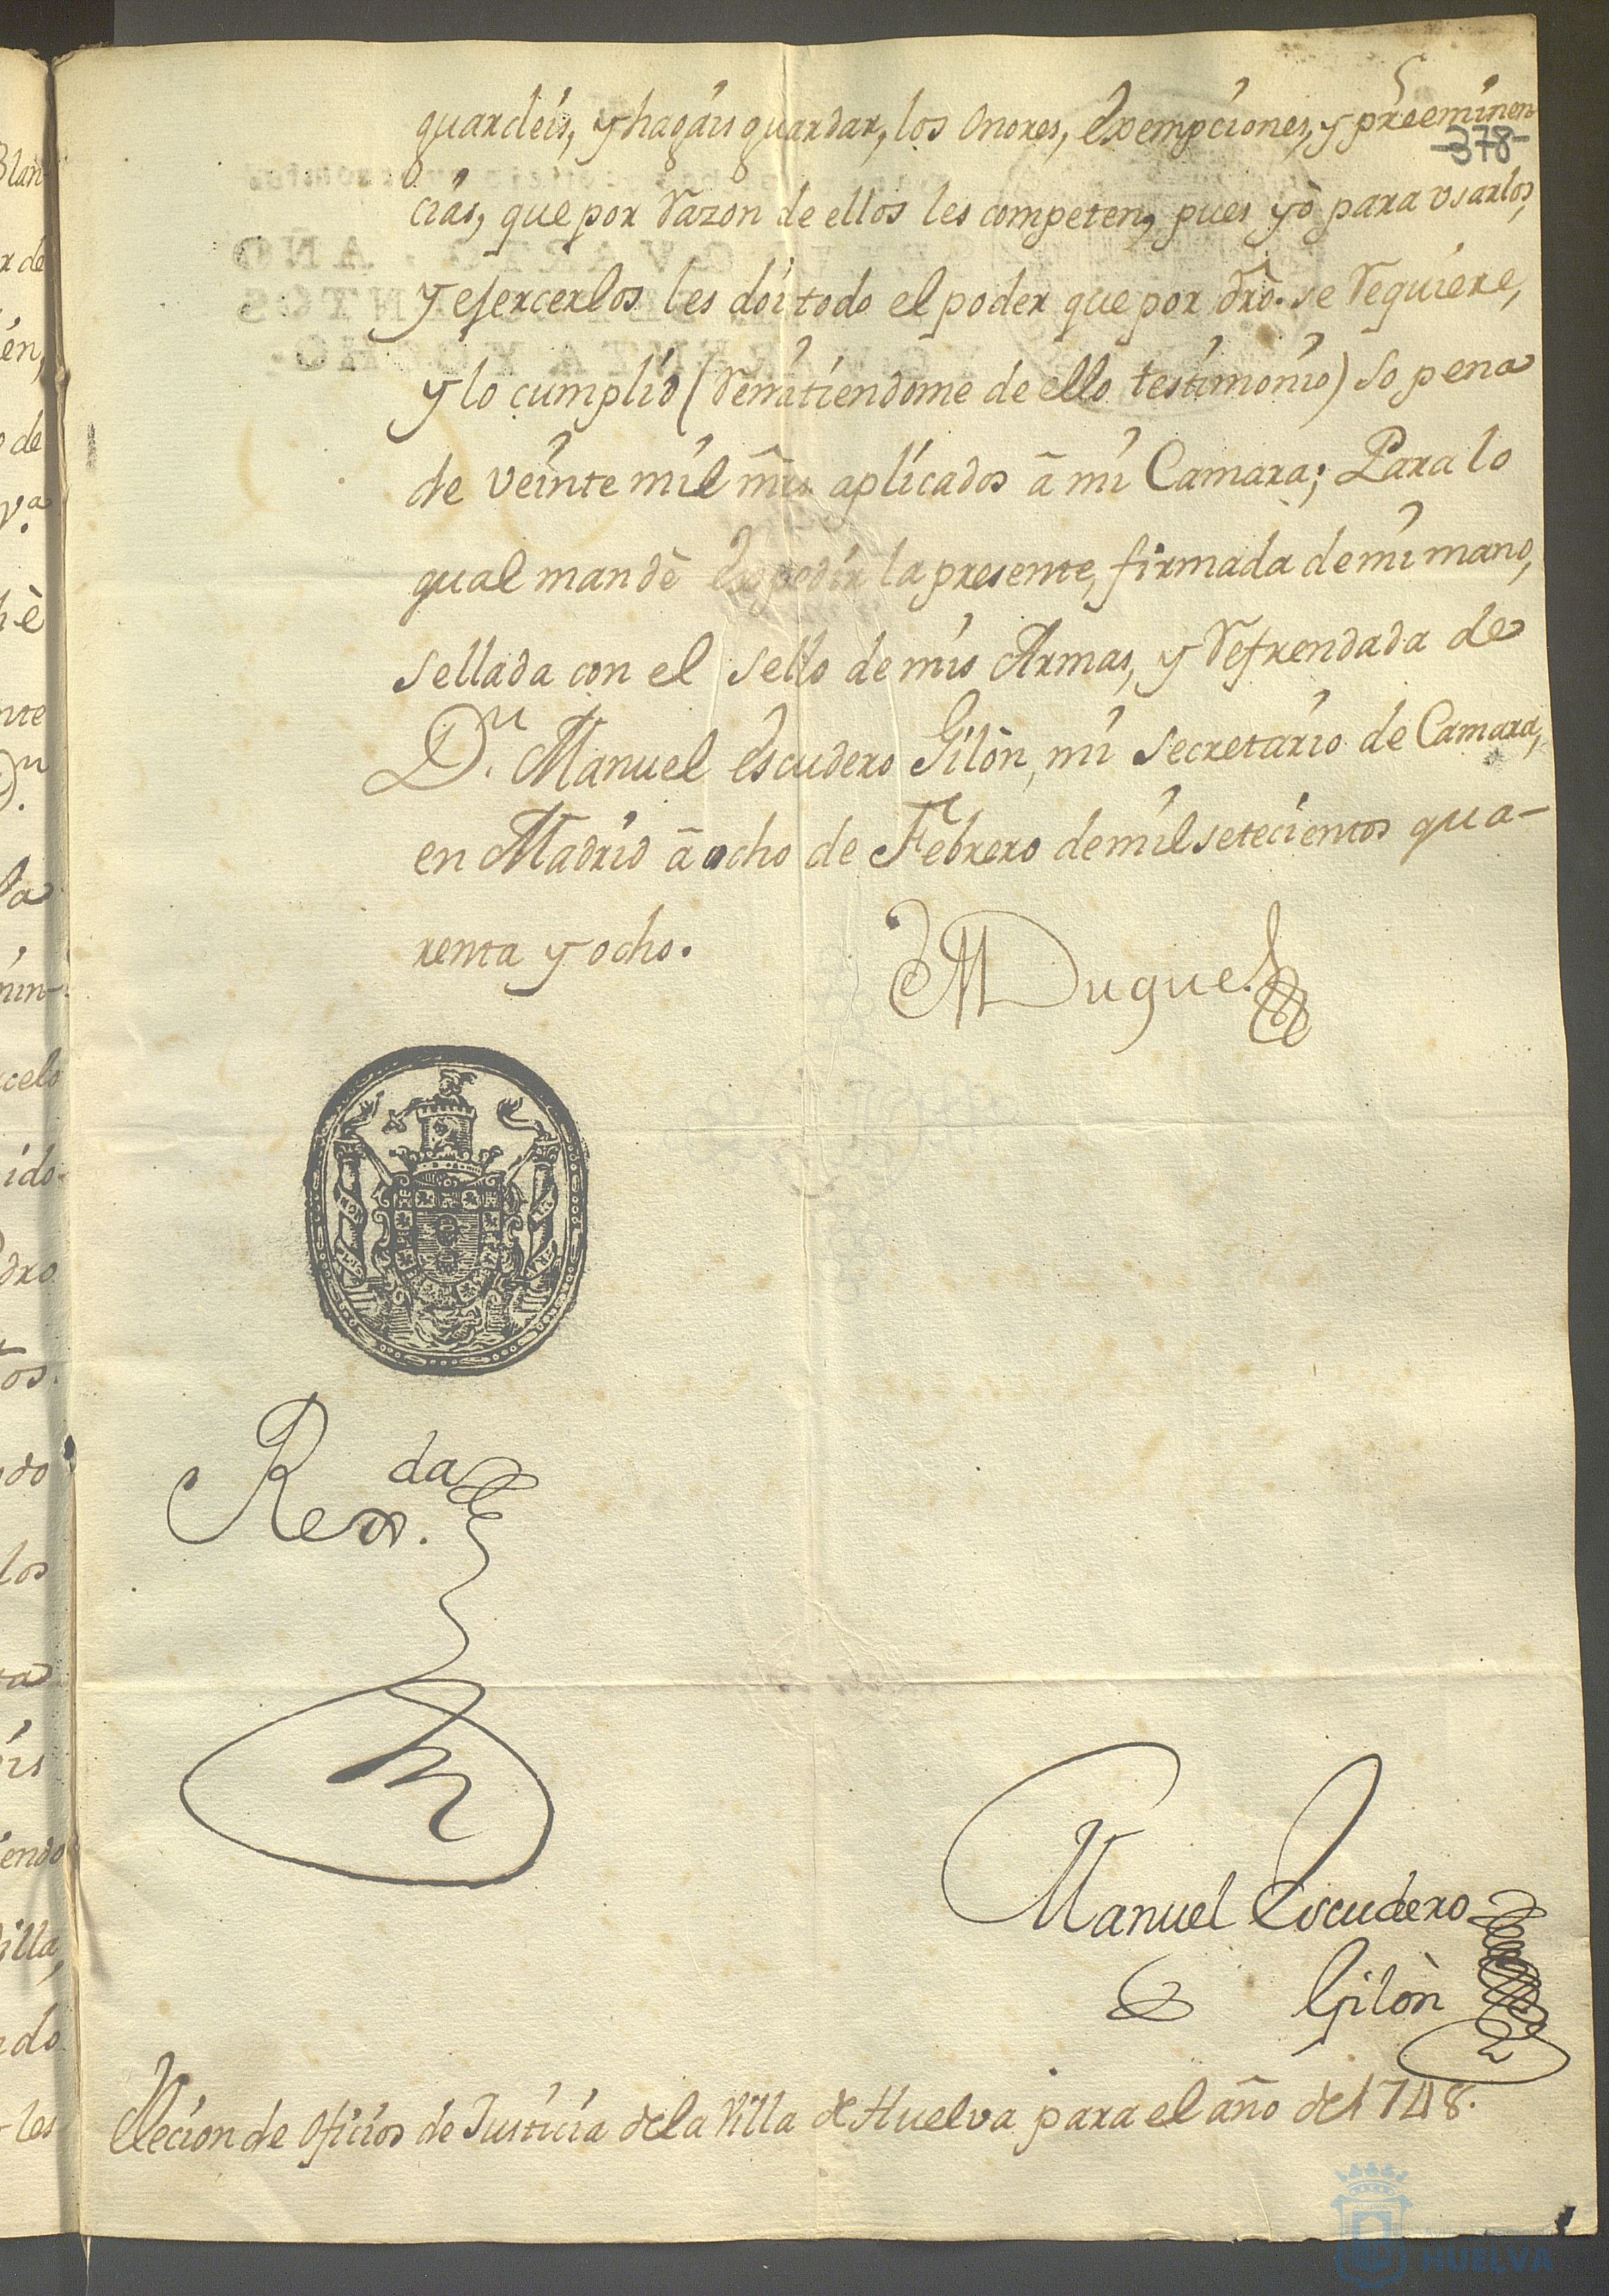 guardéis, y hagáis guardar, los Onores, Exempciones, y preeminen
-378-
cias, que por razon de ellos les competen, pues yò para usarlos,
y ejercerlos les doi todo el poder que por dro. se requiere,
y lo cumplid (remitiendome de ello testimonio) so pena
de veinte mil mrs. aplicados â mi Camara; Para lo
qual mandè Expedir la presente, firmada de mi mano,
sellada con el sello de mis Armas, y refrendada de
Dn. Manuel Escudero Gilòn, mi secretario de Camara,
en Madrid â ocho de Febrero de mil setecientos qua-
renta y ocho.
El Duque
Rexda.
Manuel Escudero
Gilòn
Elecion de Oficios de Justicia de la Villa de Huelva para el año de 1748.
HUELVA